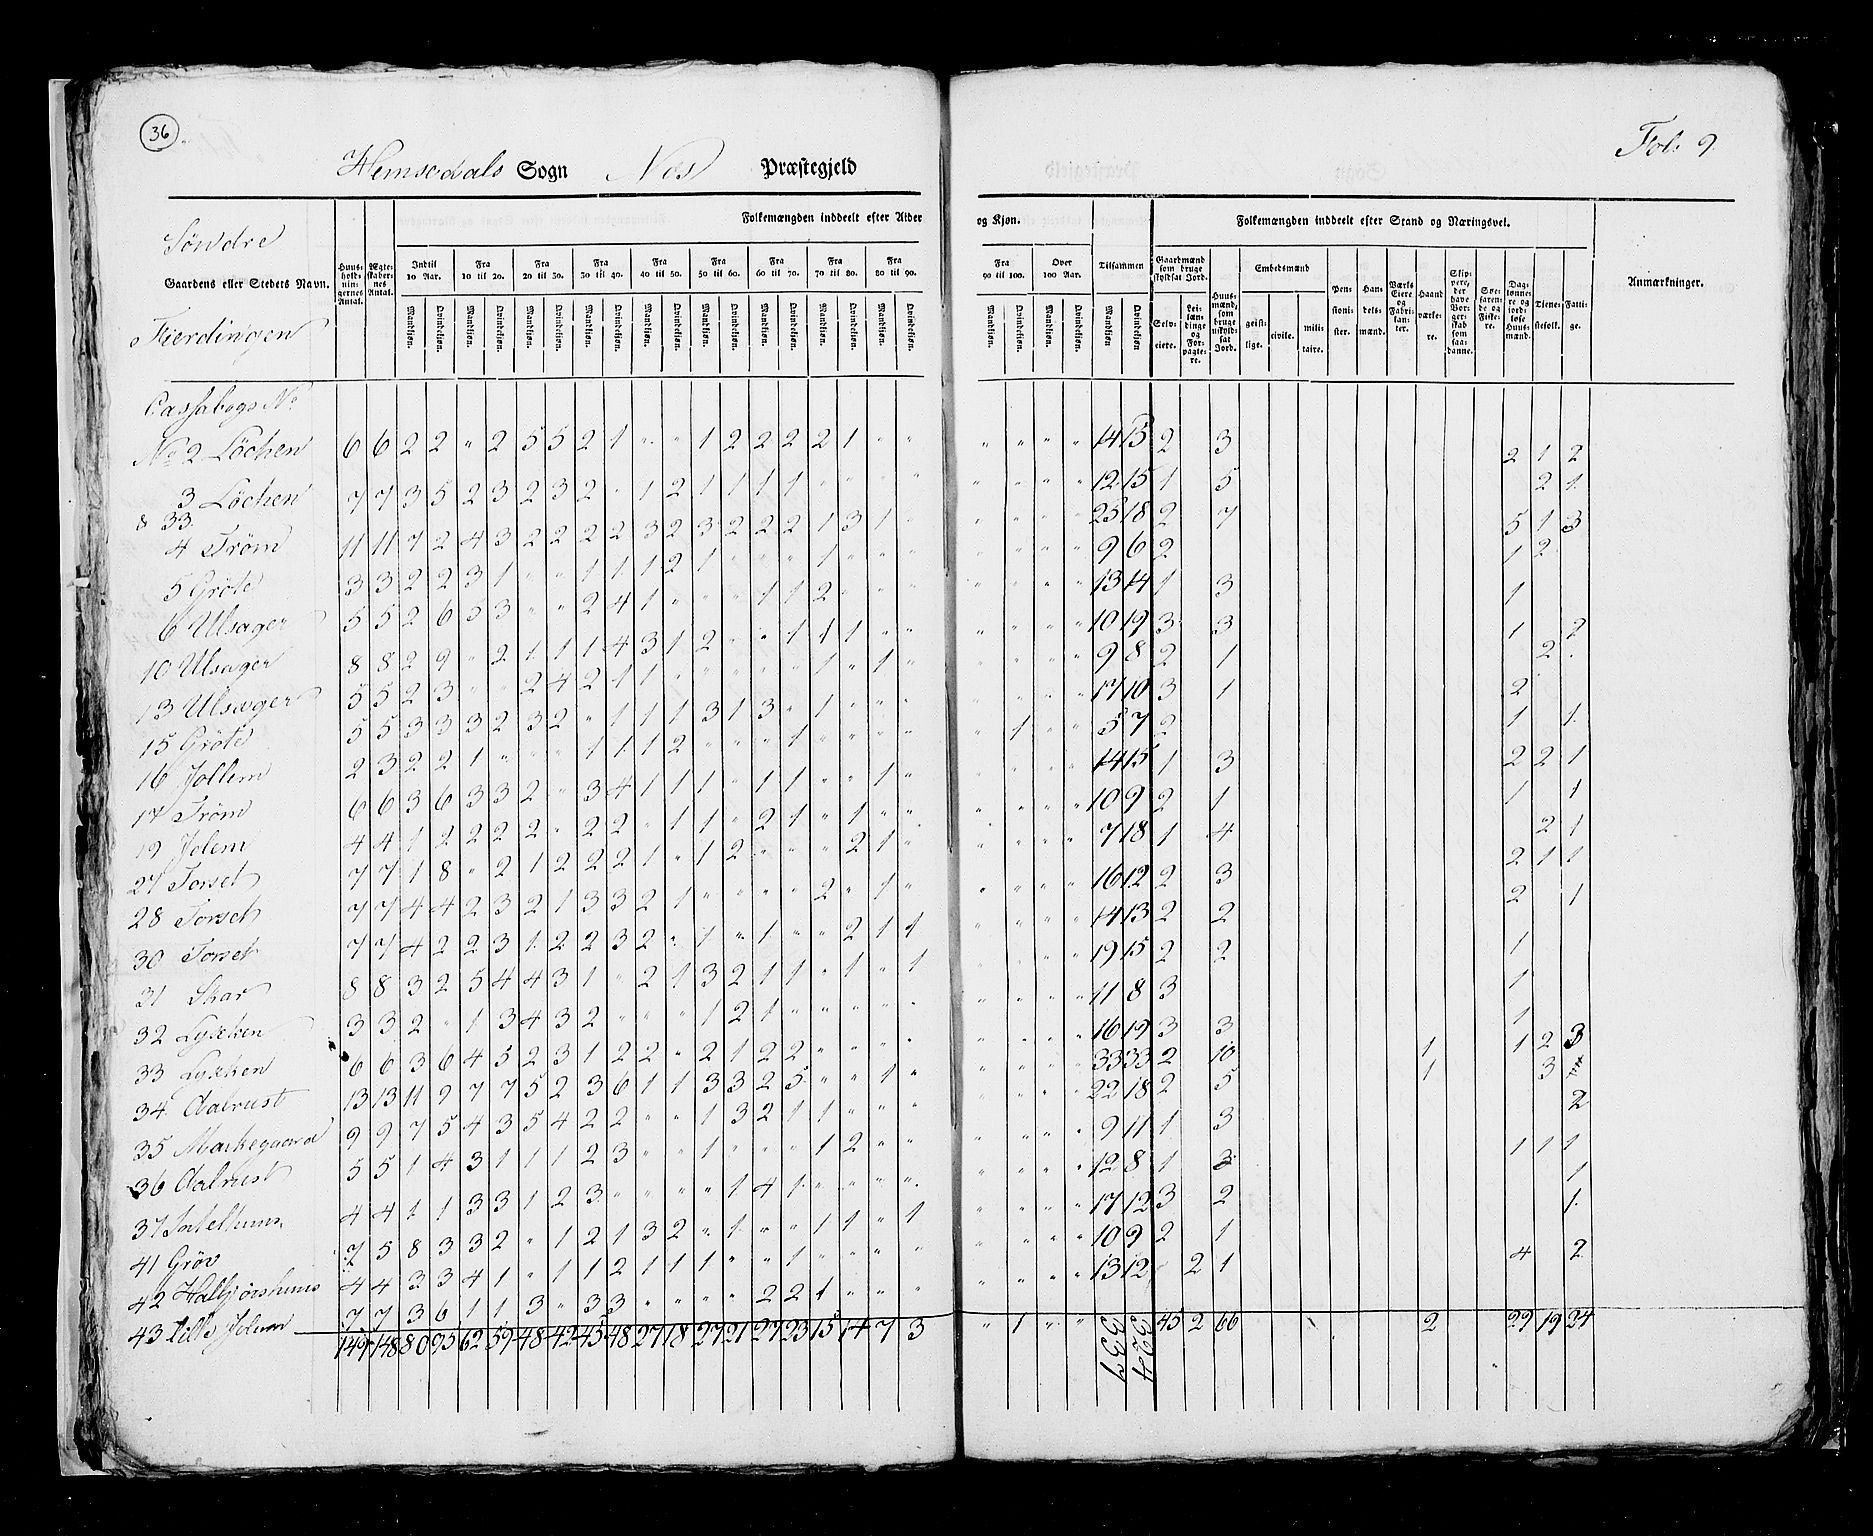 36
Fol: 9.
Hemsedals Sogn Næs Præstegjeld
Søndre
Gaardens eller Stedets Navn.
Fierdingen
Huus-holdningernes Antal.
Ægteskabernes Antal.
Folkemængden inddeelt efter Alder og Kjøn.
Indtil 10 Aar. Fra 10 til 20. Fra 20 til 30. Fra 30 til 40. Fra 40 til 50. Fra 50 til 60. Fra 60 til 70. Fra 70 til 80. Fra 80 til 90. Fra 90 til 100. Over 100 Aar. Tilsammen
Mandkjøn. Qvindekjøn.
Folkemængden inddeelt efter Stand og Næringsvei.
Gaardmænd som bruge skyldsat Jord.
Selveiere. Leilændinge og Forpagtere.
Huusmænd, som bruge uskyldsat Jord.
Embedsmænd
geistlige. civile. militaire.
Pensionister. Handelsmænd. Værks Eiere og Fabrikanter. Haandværkere. Skippere, der have Borgerskab som saadanne. Søefarende og Fiskere. Daglønnere og jordløse Huusmænd. Tjenestefolk. Fattige.
Anmærkninger.
Cassabogs No
No 2 Löchen 6 6 2 2 " 2 5 5 2 1 " " 1 2 2 2 2 1 " " " " " " 14 15 2 3 2 1 2
3 & 33 Löchen 7 7 3 5 2 3 2 3 2 " 1 2 1 1 1 1 " " " " " " " " 12 15 1 5 2 1
4 Tröm 11 11 7 2 4 3 2 2 2 2 3 2 3 2 2 2 1 3 1 " " " " " 25 18 2 7 5 1 3
5 Gröte 3 3 2 2 3 1 " " 1 1 1 2 1 " " " 1 " " " " " " " 9 6 2 1 2
6 Ulsager 5 5 2 6 5 3 " " 2 4 1 " " " 1 1 2 " " " " " " " 13 14 1 3 1
10 Ulsager 8 8 2 9 " 2 1 1 1 4 3 1 2 " " 1 1 1 " " " " " " 10 19 3 3 1 2
13 Ulsager 5 5 2 3 " " 2 4 2 1 1 " " " " " 1 " 1 " " " " " 9 8 2 1 2
15 Gröte 5 5 3 3 3 2 3 2 " 1 1 1 3 1 3 " 1 " " " " " " " 17 10 3 1 2
16 Jollem 2 3 2 2 1 " " " 1 1 1 2 " " " 1 " " " " " 1 " " 5 7 2 1 1
17 Tröm 6 6 3 6 3 3 2 " 3 4 1 1 1 " 1 1 " " 1 " " " " " 14 15 1 3 2 2 1
19 Jolem 4 4 1 2 2 2 2 " 2 2 " 1 1 " 2 1 " 1 " " " " " " 10 9 2 1 1 1
27 Torset 7 7 1 8 " 2 1 2 2 2 1 " 1 2 " " " 2 1 " " " " " 7 18 1 4 2 1
28 Torset 7 7 4 4 2 3 2 1 3 3 2 1 " " " " 2 " 1 " " " " " 16 12 2 3 2 1 1
30 Torset 7 7 4 2 2 3 1 2 2 3 2 " 1 " 1 " " 2 1 1 " " " " 14 13 2 2 2 1
31 Skar 8 8 3 2 5 4 4 3 1 " 2 1 3 2 1 1 " 1 " 1 " " " " 19 15 2 2 1
32 Lykken 3 3 2 " 1 3 4 3 2 " " " 1 2 1 " " " " " " " " " 11 8 3 1
33 Lykken 6 6 3 6 4 5 2 3 1 2 2 " 2 1 2 2 " " " " " " " " 16 19 3 3 1
34 Aalrust 13 13 11 9 7 7 5 2 3 6 1 1 3 3 2 5 " " 1 " " " " " 33 33 2 10 1 1 2 3
35 Markegaard 9 9 7 5 4 3 5 4 2 2 " " 1 3 2 1 1 " " " " " " " 22 18 2 5 1 3
36 Aalrust 5 5 1 4 3 1 1 1 2 3 " " 1 " " " 1 2 " " " " " " 9 11 1 3 2
37 4 4 1 1 3 3 1 2 3 " " " " 1 4 1 " " " " " " " " 12 8 1 3 1 1 1
41 Gröv 7 5 8 3 3 2 " 1 2 1 3 2 " 1 " " 1 1 " 1 " " " " 17 12 3 2 1
42 4 4 3 3 4 1 " 1 1 2 1 1 1 " " 1 " " " " " " " " 10 9 2 1 1
43 Lille Jolem 7 7 3 6 1 1 3 " 3 3 " " " " 2 2 1 " " " " " " " 13 12 " 2 1 4 2
149 148 80 95 62 59 48 42 45 48 27 18 27 21 27 23 15 14 7 3 " 1 " " 337 324 45 2 66 2 29 19 24